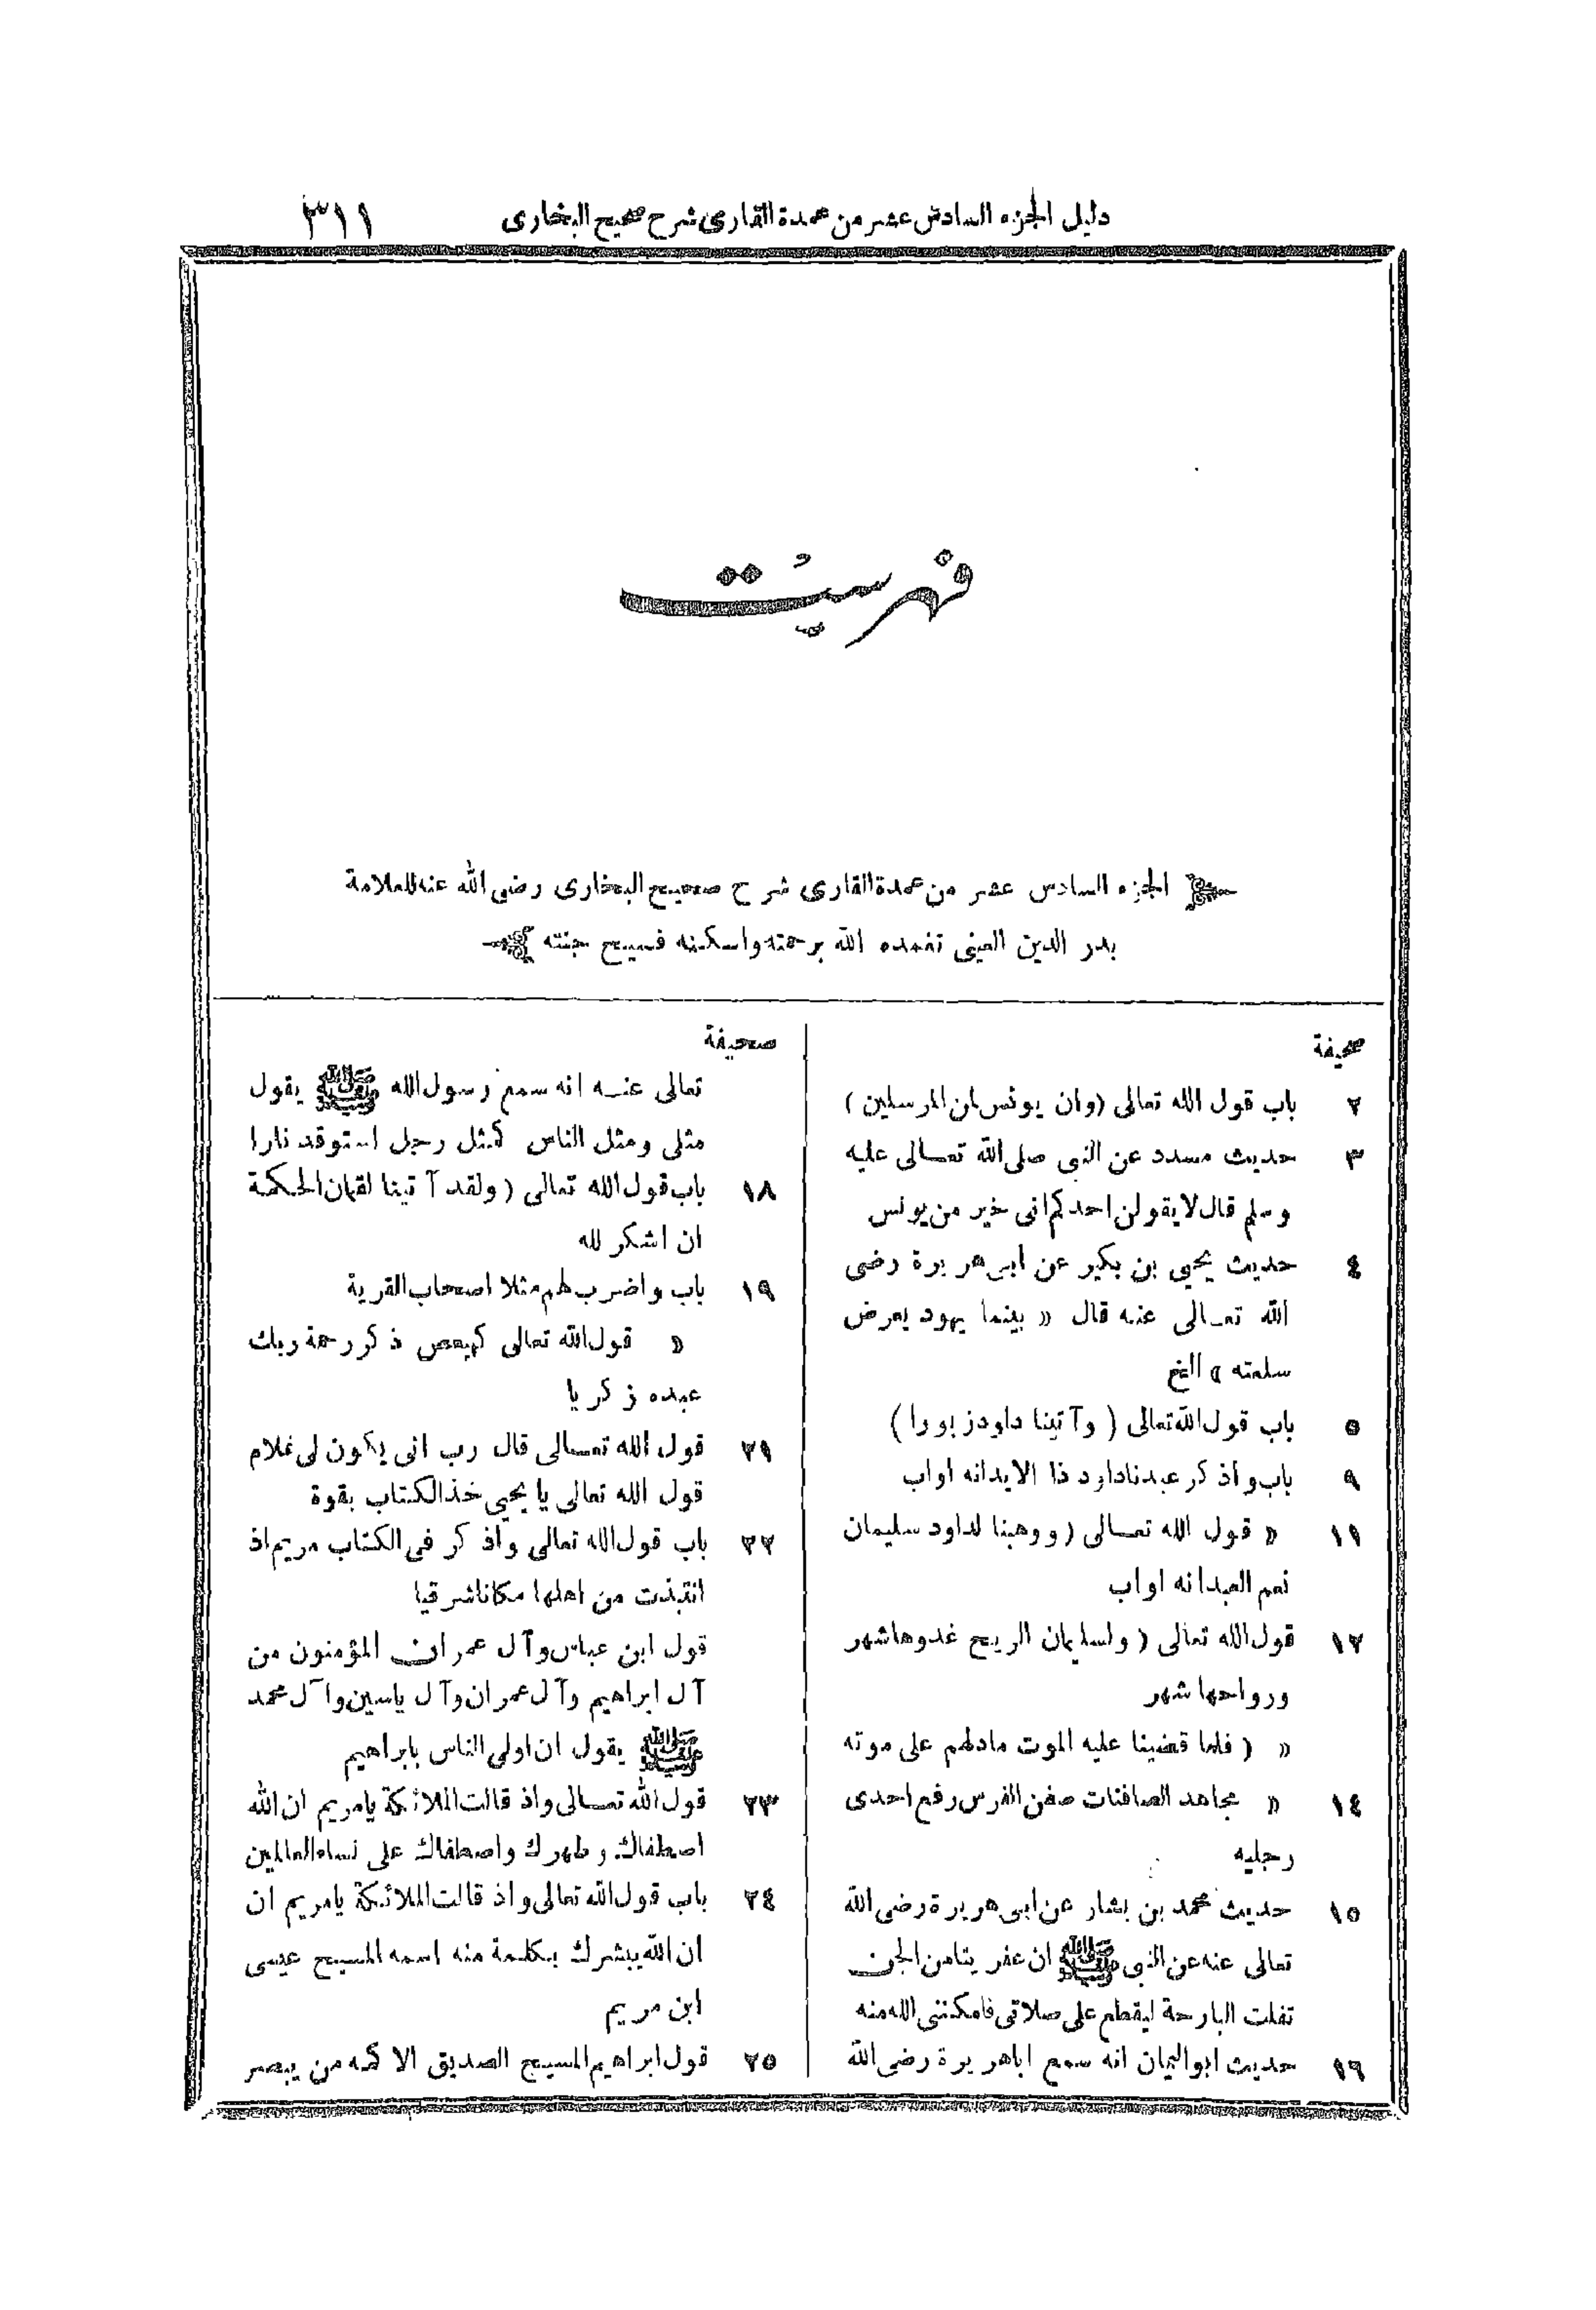 دليل الجزء السادس عشر من عمدة القارى شرح صحيح البخارى ٣١١
فهرست
الجزء السادس عشر من عمدة القارى شرح صحيح البخارى رضى الله عنه للعلامة
بدر الدين العينى تغمده الله برحمته واسكنه فسيح جنته
صحيفة
٢ باب قول الله تعالى (وان يونس لمن المرسلين)
٣ حديث مسدد عن النبى صلى الله تعالى عليه
وسلم قال لا يقولن احدكم انى خير من يونس
٤ حديث يحيى بن بكير عن ابى هريرة رضى
الله تعالى عنه قال « بينما يهود يعرض
سلعته » الخ
٥ باب قول الله تعالى ( وآتينا داود زبورا)
٩ باب واذكر عبدنا داود ذا الايد انه اواب
١١ « قول الله تعالى (ووهبنا لداود سليمان
نعم العبد انه اواب
١٢ قول الله تعالى ( ولسليمان الريح غدوها شهر
ورواحها شهر
« ( فلما قضينا عليه الموت مادلهم على موته
١٤ « مجاهد الصافنات صفن الفرس رفع احدى
رجليه
١٥ حديث محمد بن بشار عن ابى هريرة رضى الله
تعالى عنه عن النبى ﷺ ان عفريتا من الجن
تفلت البارحة ليقطع على صلاتى فامكننى الله منه
١٦ حديث ابو اليمان انه سمع اباهريرة رضى الله
صحيفة
تعالى عنه انه سمع رسول الله ﷺ يقول
مثلى ومثل الناس كمثل رجل استوقد نارا
١٨ باب قول الله تعالى ( ولقد آتينا لقمان الحكمة
ان اشكر لله
١٩ باب واضرب لهم مثلا اصحاب القرية
« قول الله تعالى كهيعص ذكر رحمة ربك
عبده زكريا
٢١ قول الله تعالى قال رب انى يكون لى غلام
قول الله تعالى يا يحيى خذ الكتاب بقوة
٢٢ باب قول الله تعالى واذكر فى الكتاب مريم اذ
انتبذت من اهلها مكانا شرقيا
قول ابن عباس وآل عمران المؤمنون من
آل ابراهيم وآل عمران وآل ياسين وآل محمد
ﷺ يقول ان اولى الناس بابراهيم
٢٣ قول الله تعالى واذ قالت الملائكة يامريم ان الله
اصطفاك وطهرك واصطفاك على نساء العالمين
٢٤ باب قول الله تعالى واذ قالت الملائكة يامريم ان
ان الله يبشرك بكلمة منه اسمه المسيح عيسى
ابن مريم
٢٥ قول ابراهيم المسيح الصديق الاكمه من يبصر